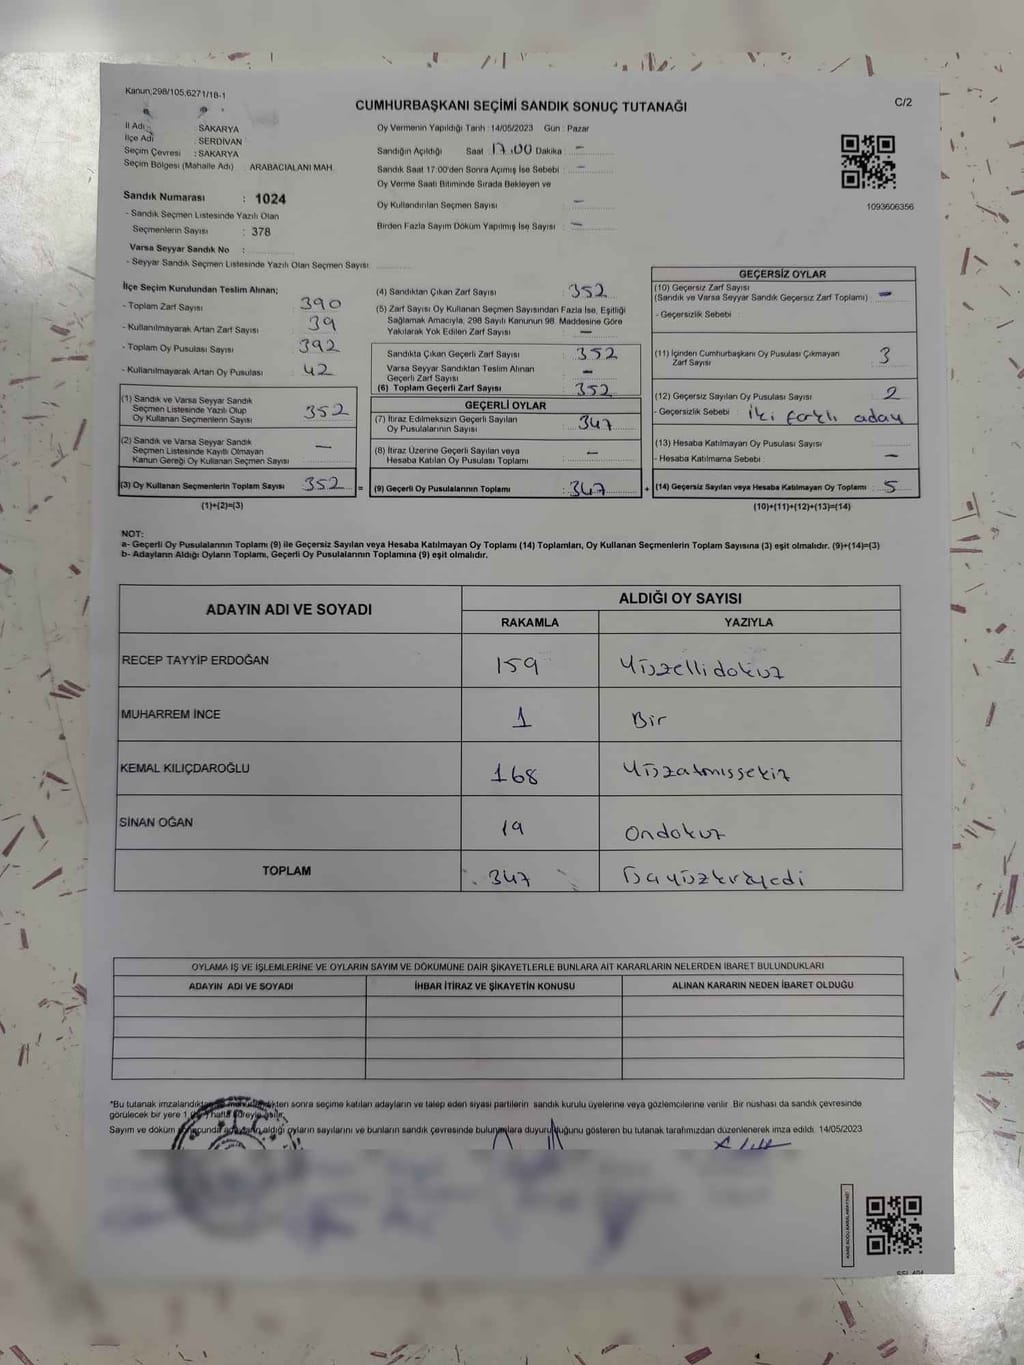 Kanun;298/105,6271/18-1
CUMHURBAŞKANI SEÇİMİ SANDIK SONUÇ TUTANAĞI
C/2
İl Adı : SAKARYA
İlçe Adı : SERDİVAN
Seçim Çevresi : SAKARYA
Seçim Bölgesi (Mahalle Adı) : ARABACIALANI MAH.
Oy Vermenin Yapıldığı Tarih : 14/05/2023 Gün : Pazar
Sandığın Açıldığı Saat 17.00 Dakika : -
Sandık Saat 17:00'den Sonra Açımış İse Sebebi : -
Oy Verme Saati Bitiminde Sırada Bekleyen ve
Oy Kullandırılan Seçmen Sayısı : -
Birden Fazla Sayım Döküm Yapılmış İse Sayısı : -
1093606356
Sandık Numarası : 1024
- Sandık Seçmen Listesinde Yazılı Olan
Seçmenlerin Sayısı : 378
Varsa Seyyar Sandık No :
- Seyyar Sandık Seçmen Listesinde Yazılı Olan Seçmen Sayısı:
İlçe Seçim Kurulundan Teslim Alınan;
- Toplam Zarf Sayısı : 390
- Kullanılmayarak Artan Zarf Sayısı : 39
- Toplam Oy Pusulası Sayısı : 392
- Kullanılmayarak Artan Oy Pusulası : 42
(1) Sandık ve Varsa Seyyar Sandık
Seçmen Listesinde Yazılı Olup
Oy Kullanan Seçmenlerin Sayısı : 352
(2) Sandık ve Varsa Seyyar Sandık
Seçmen Listesinde Kayıtlı Olmayan
Kanun Gereği Oy Kullanan Seçmen Sayısı : -
(3) Oy Kullanan Seçmenlerin Toplam Sayısı : 352
(1)+(2)=(3)
(4) Sandıktan Çıkan Zarf Sayısı : 352
(5) Zarf Sayısı Oy Kullanan Seçmen Sayısından Fazla İse, Eşitliği
Sağlamak Amacıyla, 298 Sayılı Kanunun 98. Maddesine Göre
Yakılarak Yok Edilen Zarf Sayısı : -
Sandıkta Çıkan Geçerli Zarf Sayısı : 352
Varsa Seyyar Sandıktan Teslim Alınan
Geçerli Zarf Sayısı : -
(6) Toplam Geçerli Zarf Sayısı : 352
GEÇERLİ OYLAR
(7) İtiraz Edilmeksizin Geçerli Sayılan
Oy Pusulalarının Sayısı : 347
(8) İtiraz Üzerine Geçerli Sayılan veya
Hesaba Katılan Oy Pusulası Toplamı : -
= (9) Geçerli Oy Pusulalarının Toplamı : 347
GEÇERSİZ OYLAR
(10) Geçersiz Zarf Sayısı
(Sandık ve Varsa Seyyar Sandık Geçersiz Zarf Toplamı) : -
- Geçersizlik Sebebi :
(11) İçinden Cumhurbaşkanı Oy Pusulası Çıkmayan
Zarf Sayısı : 3
(12) Geçersiz Sayılan Oy Pusulası Sayısı : 2
- Geçersizlik Sebebi : İki farklı aday
(13) Hesaba Katılmayan Oy Pusulası Sayısı :
- Hesaba Katılmama Sebebi : -
+ (14) Geçersiz Sayılan veya Hesaba Katılmayan Oy Toplamı : 5
(10)+(11)+(12)+(13)=(14)
NOT:
a- Geçerli Oy Pusulalarının Toplamı (9) ile Geçersiz Sayılan veya Hesaba Katılmayan Oy Toplamı (14) Toplamları, Oy Kullanan Seçmenlerin Toplam Sayısına (3) eşit olmalıdır. (9)+(14)=(3)
b- Adayların Aldığı Oyların Toplamı, Geçerli Oy Pusulalarının Toplamına (9) eşit olmalıdır.
ADAYIN ADI VE SOYADI
ALDIĞI OY SAYISI
RAKAMLA YAZIYLA
RECEP TAYYİP ERDOĞAN 159 Yüzellidokuz
MUHARREM İNCE 1 Bir
KEMAL KILIÇDAROĞLU 168 Yüzatmışsekiz
SİNAN OĞAN 19 Ondokuz
TOPLAM 347
OYLAMA İŞ VE İŞLEMLERİNE VE OYLARIN SAYIM VE DÖKÜMÜNE DAİR ŞİKAYETLERLE BUNLARA AİT KARARLARIN NELERDEN İBARET BULUNDUKLARI
ADAYIN ADI VE SOYADI İHBAR İTİRAZ VE ŞİKAYETİN KONUSU ALINAN KARARIN NEDEN İBARET OLDUĞU
*Bu tutanak imzalandıktan ve sonra seçime katılan adayların ve talep eden siyasi partilerin sandık kurulu üyelerine veya gözlemcilerine verilir. Bir nüshası da sandık çevresinde
görülecek bir yere 1 hafta süreyle asılır.
Sayım ve döküm sonucunda adayların aldığı oyların sayılarını ve bunların sandık çevresinde bulunanlara duyurulduğunu gösteren bu tutanak tarafımızdan düzenlenerek imza edildi. 14/05/2023